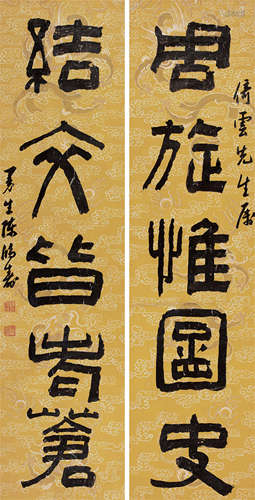 周旋惟圖史
倚雲先生屬
結交皆老蒼
曼生陳鴻壽